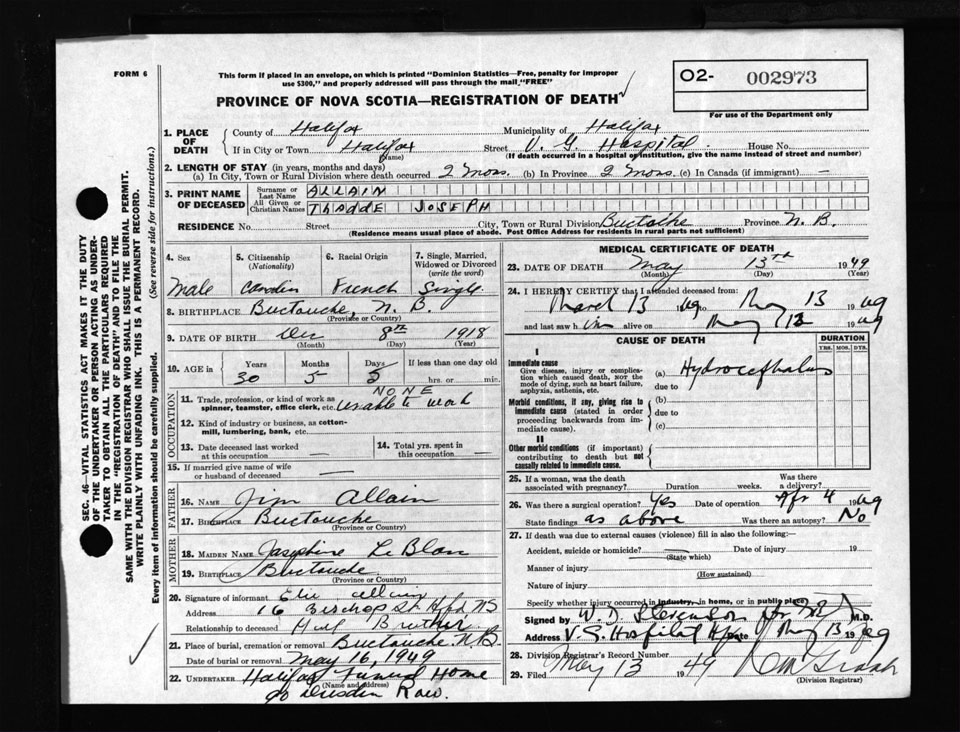 FORM 6
This form if placed in an envelope, on which is printed "Dominion Statistics—Free, penalty for improper
use $300," and properly addressed will pass through the mail "FREE"
O2- 002973
For use of the Department only
PROVINCE OF NOVA SCOTIA—REGISTRATION OF DEATH
1. PLACE OF DEATH County of Halifax Municipality of Halifax
If in City or Town Halifax (Name) Street V. G. Hospital House No.
(If death occurred in a hospital or institution, give the name instead of street and number)
2. LENGTH OF STAY (in years, months and days)
(a) In City, Town or Rural Division where death occurred 2 Mos. (b) In Province 2 Mos. (c) In Canada (if immigrant) —
3. PRINT NAME OF DECEASED Surname or Last Name ALLAIN
All Given or Christian Names THADDE JOSEPH
RESIDENCE No. Street City, Town or Rural Division Buctouche Province N. B.
(Residence means usual place of abode. Post Office Address for residents in rural parts not sufficient)
4. Sex 5. Citizenship (Nationality) 6. Racial Origin 7. Single, Married, Widowed or Divorced (write the word)
Male French Single
8. BIRTHPLACE Buctouche, N. B.
(Province or Country)
9. DATE OF BIRTH Dec 8th 1918
(Month) (Day) (Year)
10. AGE in Years Months Days If less than one day old
30 5 5 hrs. or min.
NONE
11. Trade, profession, or kind of work as spinner, teamster, office clerk, etc. unable to work
12. Kind of industry or business, as cotton-mill, lumbering, bank, etc.
13. Date deceased last worked at this occupation —
14. Total yrs. spent in this occupation —
15. If married give name of wife or husband of deceased —
OCCUPATION
FATHER
16. NAME Jim Allain
17. BIRTHPLACE Buctouche
(Province or Country)
MOTHER
18. MAIDEN NAME Josephine LeBlan
19. BIRTHPLACE Buctouche
(Province or Country)
20. Signature of informant Elie Allain
Address 16 Bishop St Hfx NS
Relationship to deceased Half Brother
21. Place of burial, cremation or removal Buctouche N.B
Date of burial or removal May 16, 1949
22. UNDERTAKER Halifax Funeral Home
(Name and address)
Row.
MEDICAL CERTIFICATE OF DEATH
23. DATE OF DEATH May 13th 1949
(Month) (Day) (Year)
24. I HEREBY CERTIFY that I attended deceased from:
March 13 49 to May 13 1949
and last saw him alive on May 13 1949
CAUSE OF DEATH
DURATION
YRS. MOS. DYS.
I
Immediate cause
Give disease, injury or complication which caused death, not the mode of dying, such as heart failure, asphyxia, asthenia, etc.
(a) Hydrocephalus
due to
Morbid conditions, if any, giving rise to immediate cause (stated in order proceeding backwards from immediate cause).
(b)
due to
(c)
II
Other morbid conditions (if important) contributing to death but not causally related to immediate cause.
25. If a woman, was the death associated with pregnancy? Duration weeks. Was there a delivery?
26. Was there a surgical operation? Yes Date of operation Apr 4 1949
State findings as above Was there an autopsy? No
27. If death was due to external causes (violence) fill in also the following:
Accident, suicide or homicide? (State which) Date of injury 19
Manner of injury
(How sustained)
Nature of injury
Specify whether injury occurred in industry, in home, or in public place
Signed by W. D. M.D.
Address V. G. Hospital Hfx Date May 13 1949
28. Division Registrar's Record Number
29. Filed May 13 1949
(Division Registrar)
SEC. 46—VITAL STATISTICS ACT MAKES IT THE DUTY
OF THE UNDERTAKER OR PERSON ACTING AS UNDER-
TAKER TO OBTAIN ALL THE PARTICULARS REQUIRED
IN THE "REGISTRATION OF DEATH" AND TO FILE THE
SAME WITH THE DIVISION REGISTRAR WHO SHALL ISSUE THE BURIAL PERMIT.
WRITE PLAINLY WITH UNFADING INK. THIS IS A PERMANENT RECORD.
Every item of information should be carefully supplied. (See reverse side for instructions.)